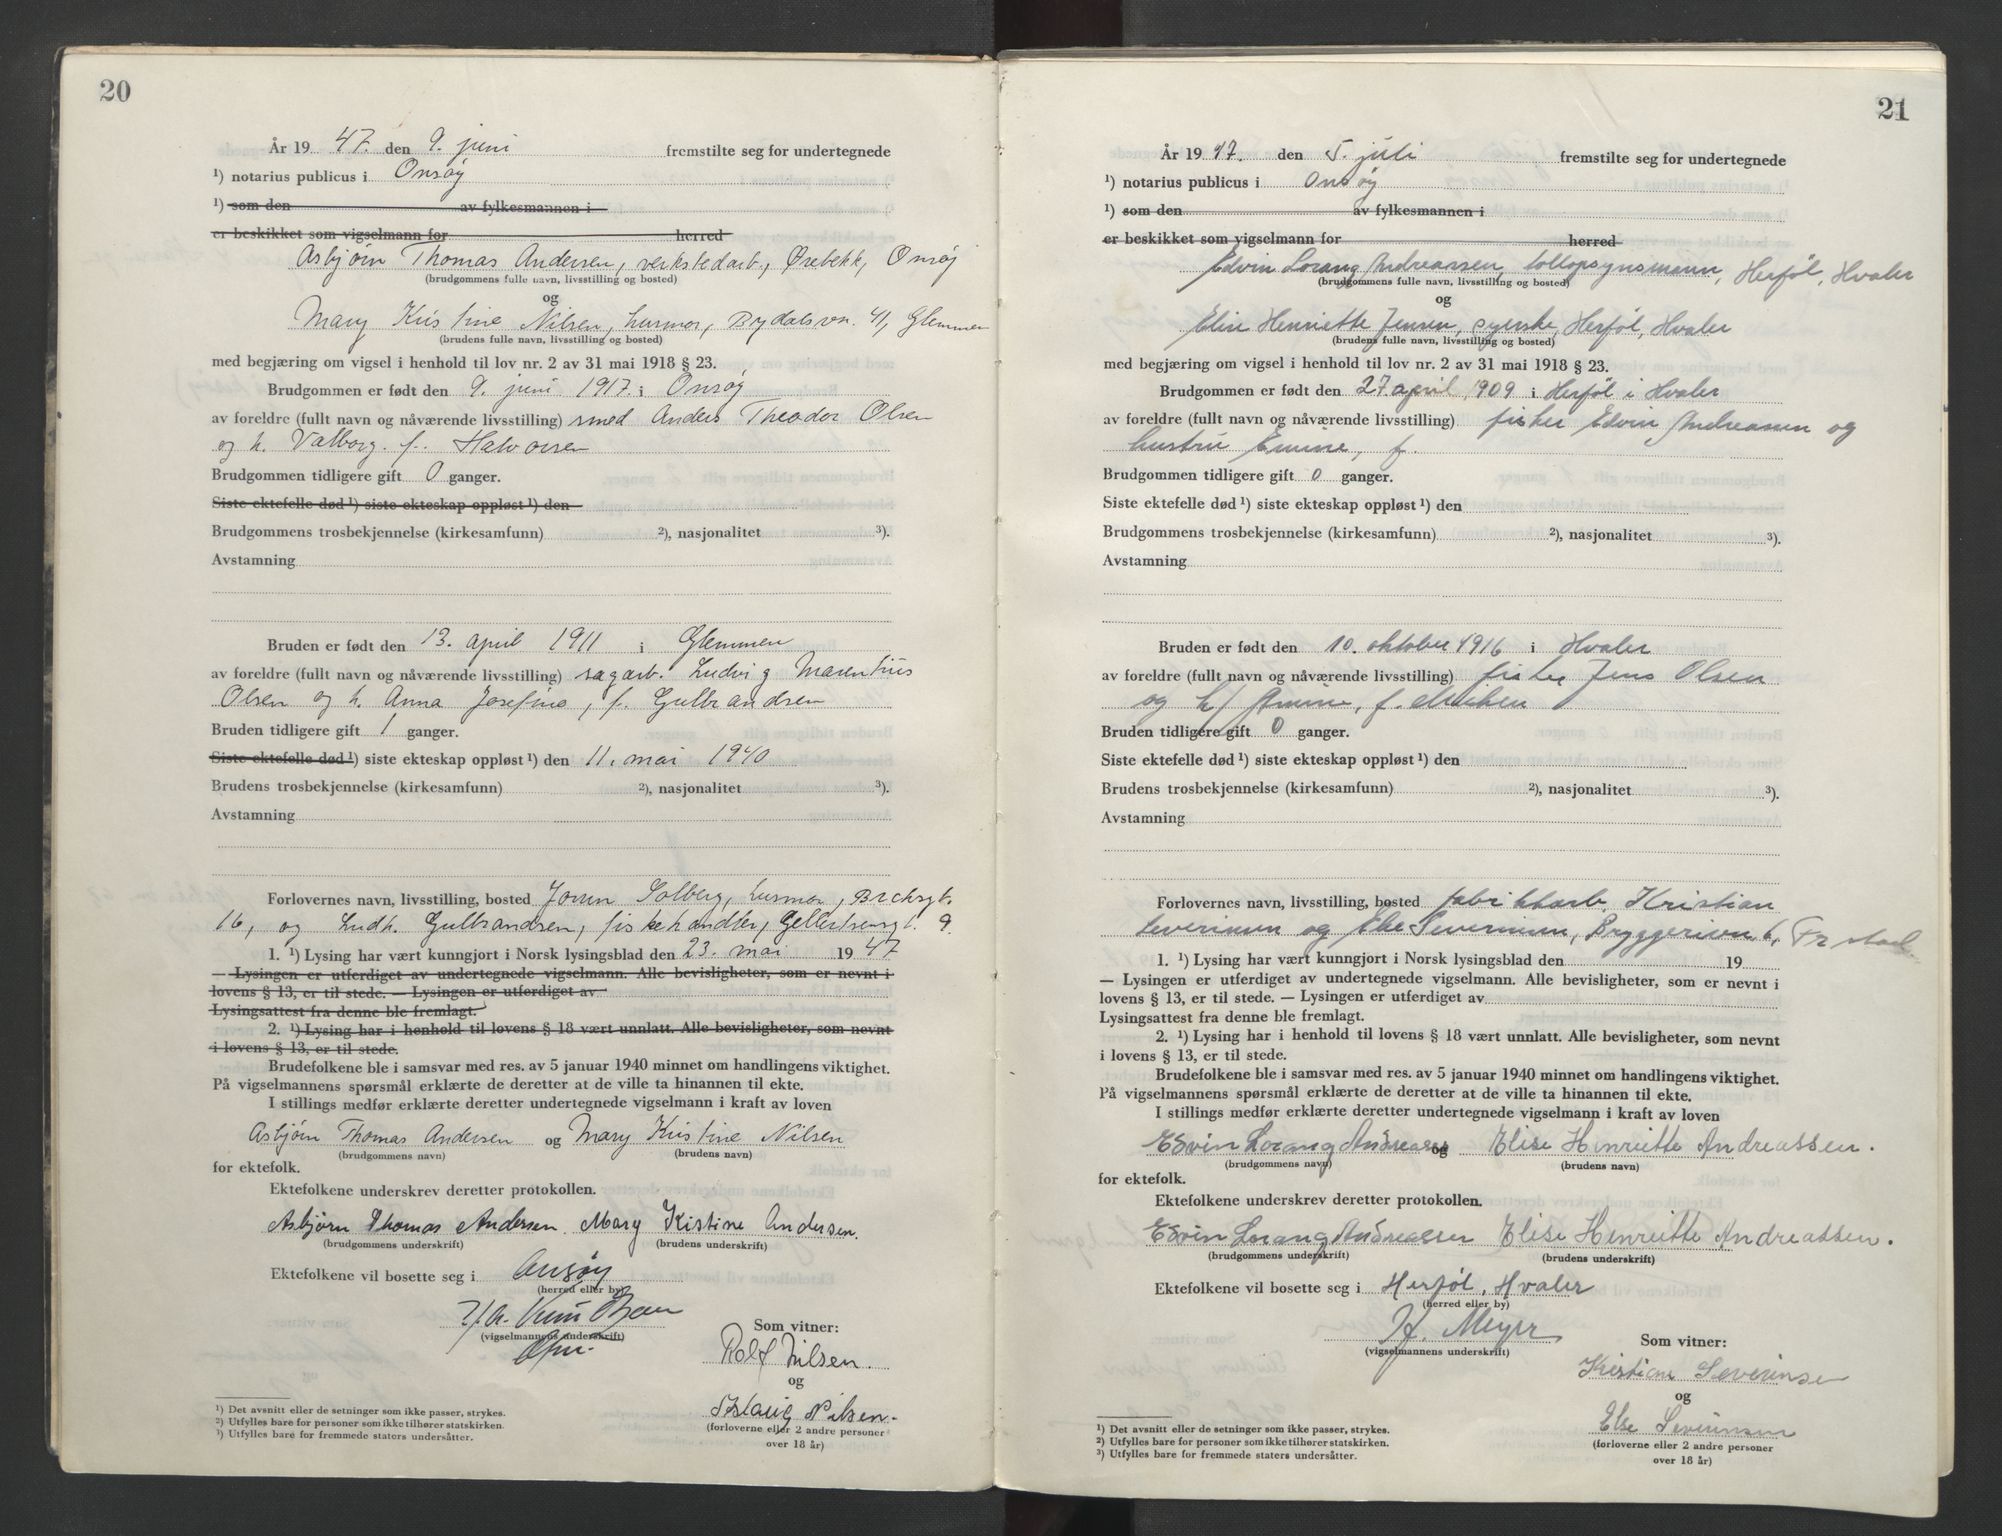 20
År 19 47. den 9. juni fremstilte seg for undertegnede
¹) notarius publicus i Onsøy
¹) som den av fylkesmannen i
er beskikket som vigselmann for herred
Asbjørn Thomas Andersen, verkstedarb., Ørebekk, Onsøy
(brudgommens fulle navn, livsstilling og bosted)
og
Mary Kristine Nilsen, husmor, Bydalsvn. 41, Glemmen
(brudens fulle navn, livsstilling og bosted)
med begjæring om vigsel i henhold til lov nr. 2 av 31 mai 1918 § 23.
Brudgommen er født den 9. juni 1917. i Onsøy
av foreldre (fullt navn og nåværende livsstilling) smed Anders Theodor Olsen
og h. Valborg. f. Halvorsen
Brudgommen tidligere gift 0 ganger.
Siste ektefelle død ¹) siste ekteskap oppløst ¹) den
Brudgommens trosbekjennelse (kirkesamfunn) ²), nasjonalitet ³).
Avstamning
Bruden er født den 13. april 1911 i Glemmen
av foreldre (fullt navn og nåværende livsstilling) sagarb. Ludvig Marentius
Olsen og h. Anna Josefine, f. Gulbrandsen
Bruden tidligere gift 1 ganger.
Siste ektefelle død ¹) siste ekteskap oppløst ¹) den 11. mai 1940
Brudens trosbekjennelse (kirkesamfunn) ²), nasjonalitet ³).
Avstamning
Forlovernes navn, livsstilling, bosted Jorun Solberg, husmor,
16, og Ludv. Gulbrandsen, fiskehandler, 9.
1. ¹) Lysing har vært kunngjort i Norsk lysingsblad den 23. mai 19 47
— Lysingen er utferdiget av undertegnede vigselmann. Alle bevisligheter, som er nevnt i
lovens § 13, er til stede. — Lysingen er utferdiget av
Lysingsattest fra denne ble fremlagt.
2. ¹) Lysing har i henhold til lovens § 18 vært unnlatt. Alle bevisligheter, som nevnt
i lovens § 13, er til stede.
Brudefolkene ble i samsvar med res. av 5 januar 1940 minnet om handlingens viktighet.
På vigselmannens spørsmål erklærte de deretter at de ville ta hinannen til ekte.
I stillings medfør erklærte deretter undertegnede vigselmann i kraft av loven
Asbjørn Thomas Andersen og Mary Kristine Nilsen
(brudgommens navn) (brudens navn)
for ektefolk.
Ektefolkene underskrev deretter protokollen.
Asbjørn Thomas Andersen. Mary Kistine Andersen.
(brudgommens underskrift) (brudens underskrift)
Ektefolkene vil bosette seg i Onsøy
(herred eller by)
(vigselmannens underskrift)
Som vitner:
Rolf Nilsen.
og
Nilsen.
(forloverne eller 2 andre personer
over 18 år)
¹) Det avsnitt eller de setninger som ikke passer, strykes.
²) Utfylles bare for personer som ikke tilhører statskirken.
³) Utfylles bare for fremmede staters undersåtter.
21
År 19 47. den 5. juli fremstilte seg for undertegnede
¹) notarius publicus i Onsøy
¹) som den av fylkesmannen i
er beskikket som vigselmann for herred
Edvin Lorang Andreassen, tollopsynsmann, Herføl, Hvaler
(brudgommens fulle navn, livsstilling og bosted)
og
Elise Henriette Jensen, syerske, Herføl, Hvaler
(brudens fulle navn, livsstilling og bosted)
med begjæring om vigsel i henhold til lov nr. 2 av 31 mai 1918 § 23.
Brudgommen er født den 27. april 1909 i Herføl i Hvaler
av foreldre (fullt navn og nåværende livsstilling) fisker Edvin Andreassen og
hustru Emine, f.
Brudgommen tidligere gift 0 ganger.
Siste ektefelle død ¹) siste ekteskap oppløst ¹) den
Brudgommens trosbekjennelse (kirkesamfunn) ²), nasjonalitet ³).
Avstamning
Bruden er født den 10. oktober 1916 i Hvaler
av foreldre (fullt navn og nåværende livsstilling) fisker Jens Olsen
og h/ f.
Bruden tidligere gift 0 ganger.
Siste ektefelle død ¹) siste ekteskap oppløst ¹) den
Brudens trosbekjennelse (kirkesamfunn) ²), nasjonalitet ³).
Avstamning
Forlovernes navn, livsstilling, bosted fabrikkarb. Kristian
Severinsen og Else Severinsen, 6, Fr.stad
1. ¹) Lysing har vært kunngjort i Norsk lysingsblad den 19
— Lysingen er utferdiget av undertegnede vigselmann. Alle bevisligheter, som er nevnt i
lovens § 13, er til stede. — Lysingen er utferdiget av
Lysingsattest fra denne ble fremlagt.
2. ¹) Lysing har i henhold til lovens § 18 vært unnlatt. Alle bevisligheter, som nevnt
i lovens § 13, er til stede.
Brudefolkene ble i samsvar med res. av 5 januar 1940 minnet om handlingens viktighet.
På vigselmannens spørsmål erklærte de deretter at de ville ta hinannen til ekte.
I stillings medfør erklærte deretter undertegnede vigselmann i kraft av loven
Edvin Lorang Andreassen og Elise Henriette Andreassen.
(brudgommens navn) (brudens navn)
for ektefolk.
Ektefolkene underskrev deretter protokollen.
Edvin Lorang Andreassen Elise Henriette Andreassen.
(brudgommens underskrift) (brudens underskrift)
Ektefolkene vil bosette seg i Herføl, Hvaler
(herred eller by)
H. Meyer
(vigselmannens underskrift)
Som vitner:
Kristian Severinsen
og
Else Severinsen
(forloverne eller 2 andre personer
over 18 år)
¹) Det avsnitt eller de setninger som ikke passer, strykes.
²) Utfylles bare for personer som ikke tilhører statskirken.
³) Utfylles bare for fremmede staters undersåtter.